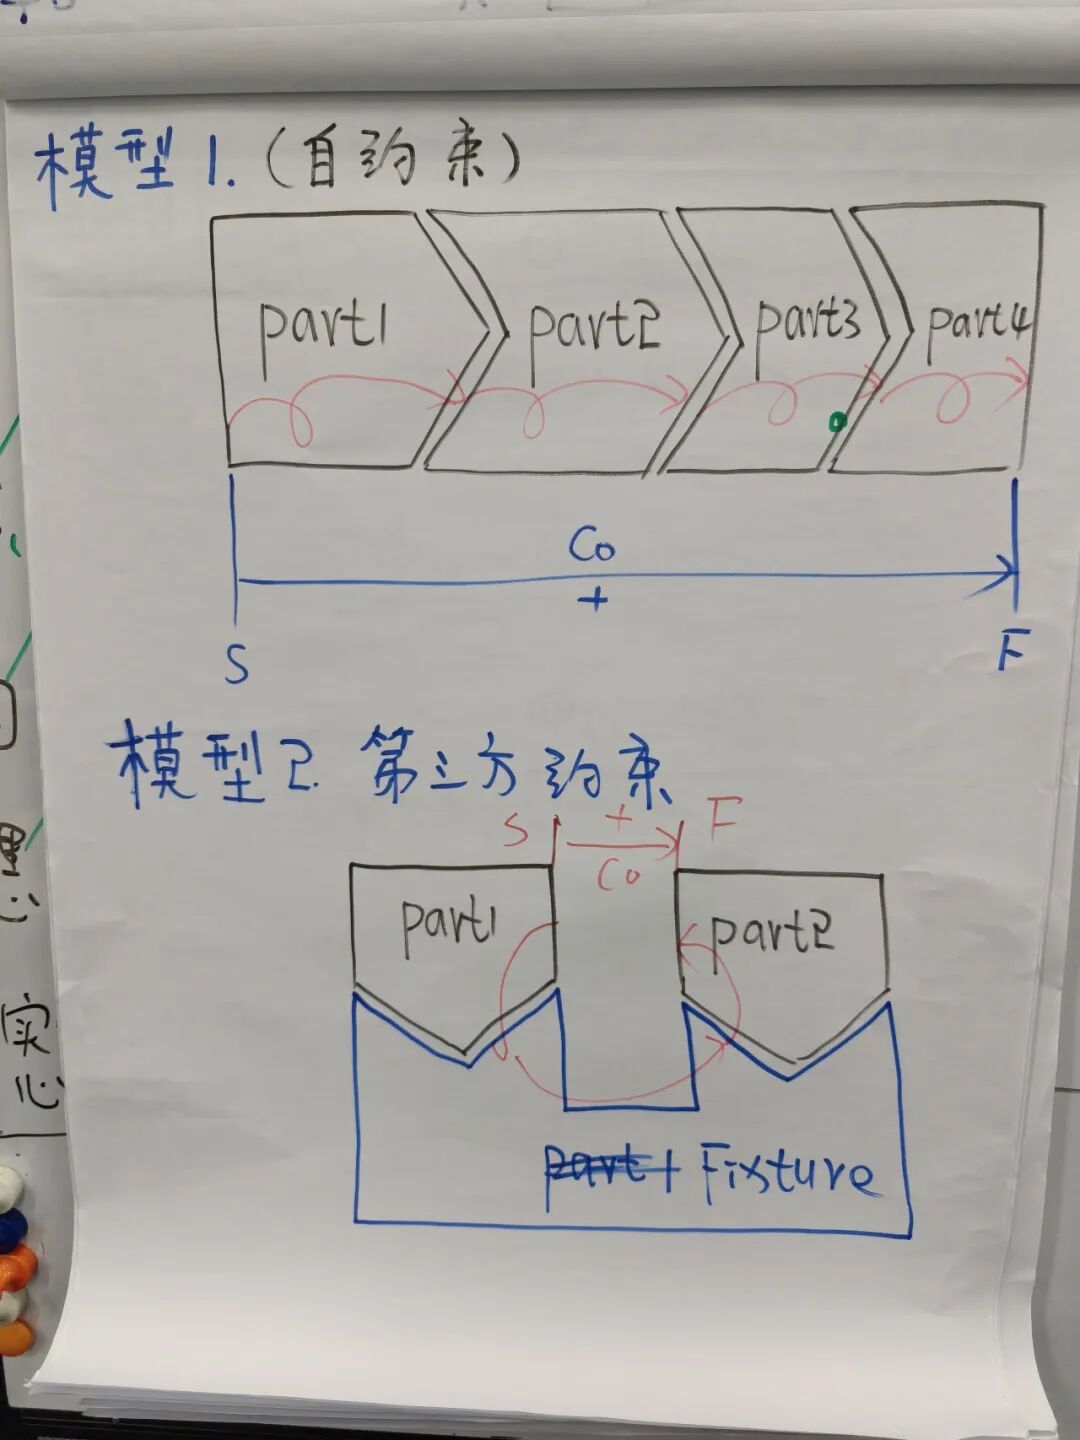 模型1.(自约束)
part1 part2 part3 part4
Co
+
S F
模型2. 第三方约束
S + F
Co
part1 part2
part1 Fixture
实
心